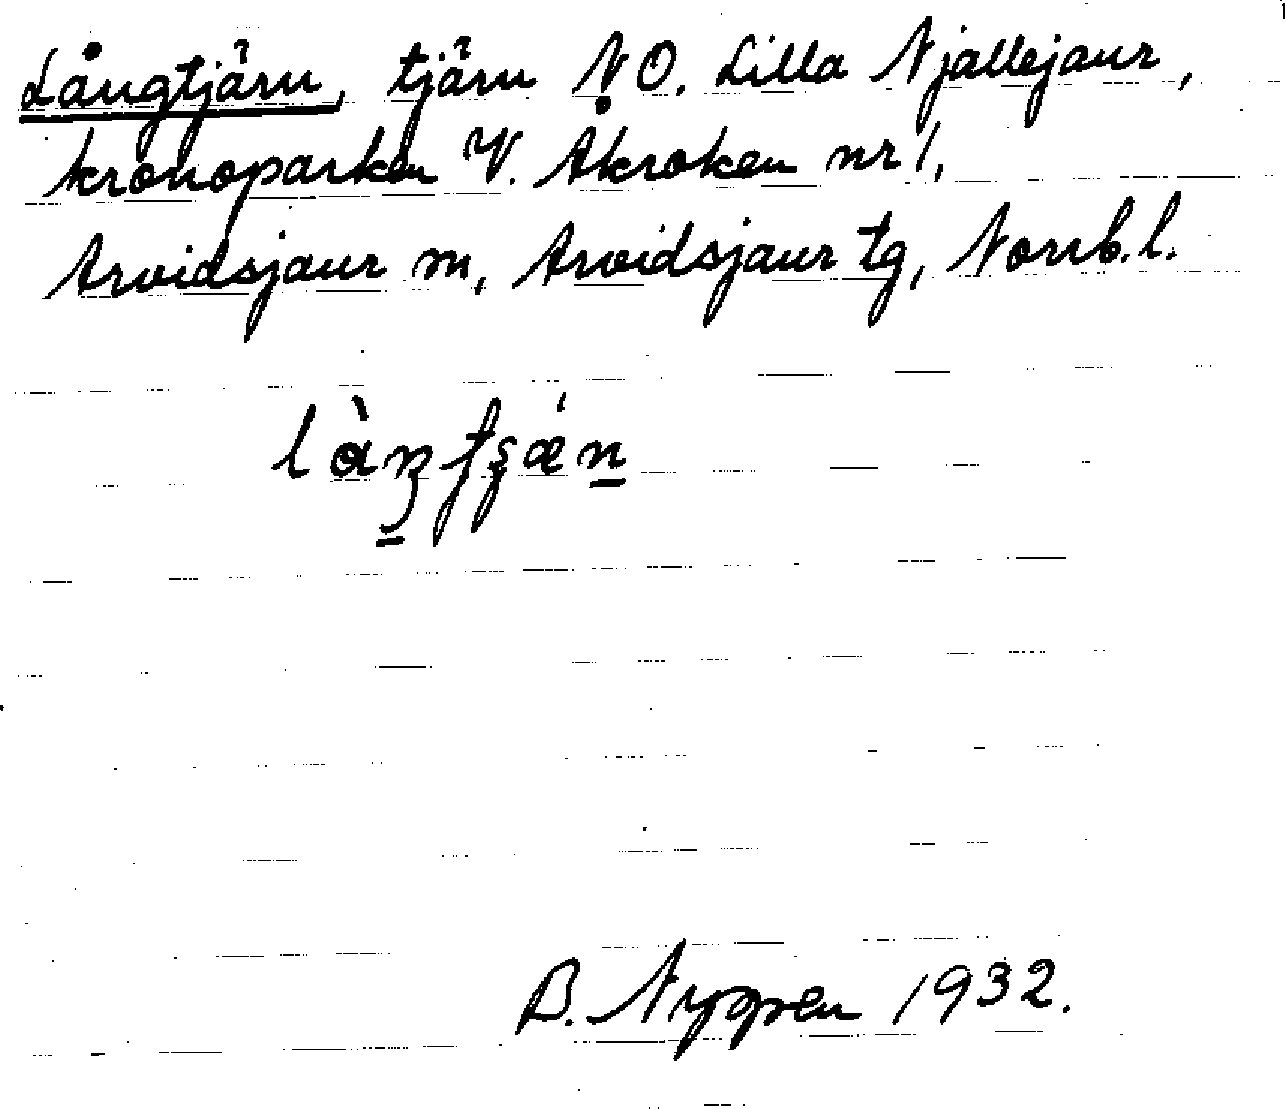 Långtjärn, tjärn NO. Lilla Njallejaur,
kronoparken V. Åkroken nr 1,
Arvidsjaur sn, Arvidsjaur tg, Norrb.l.
B. Nygren 1932.